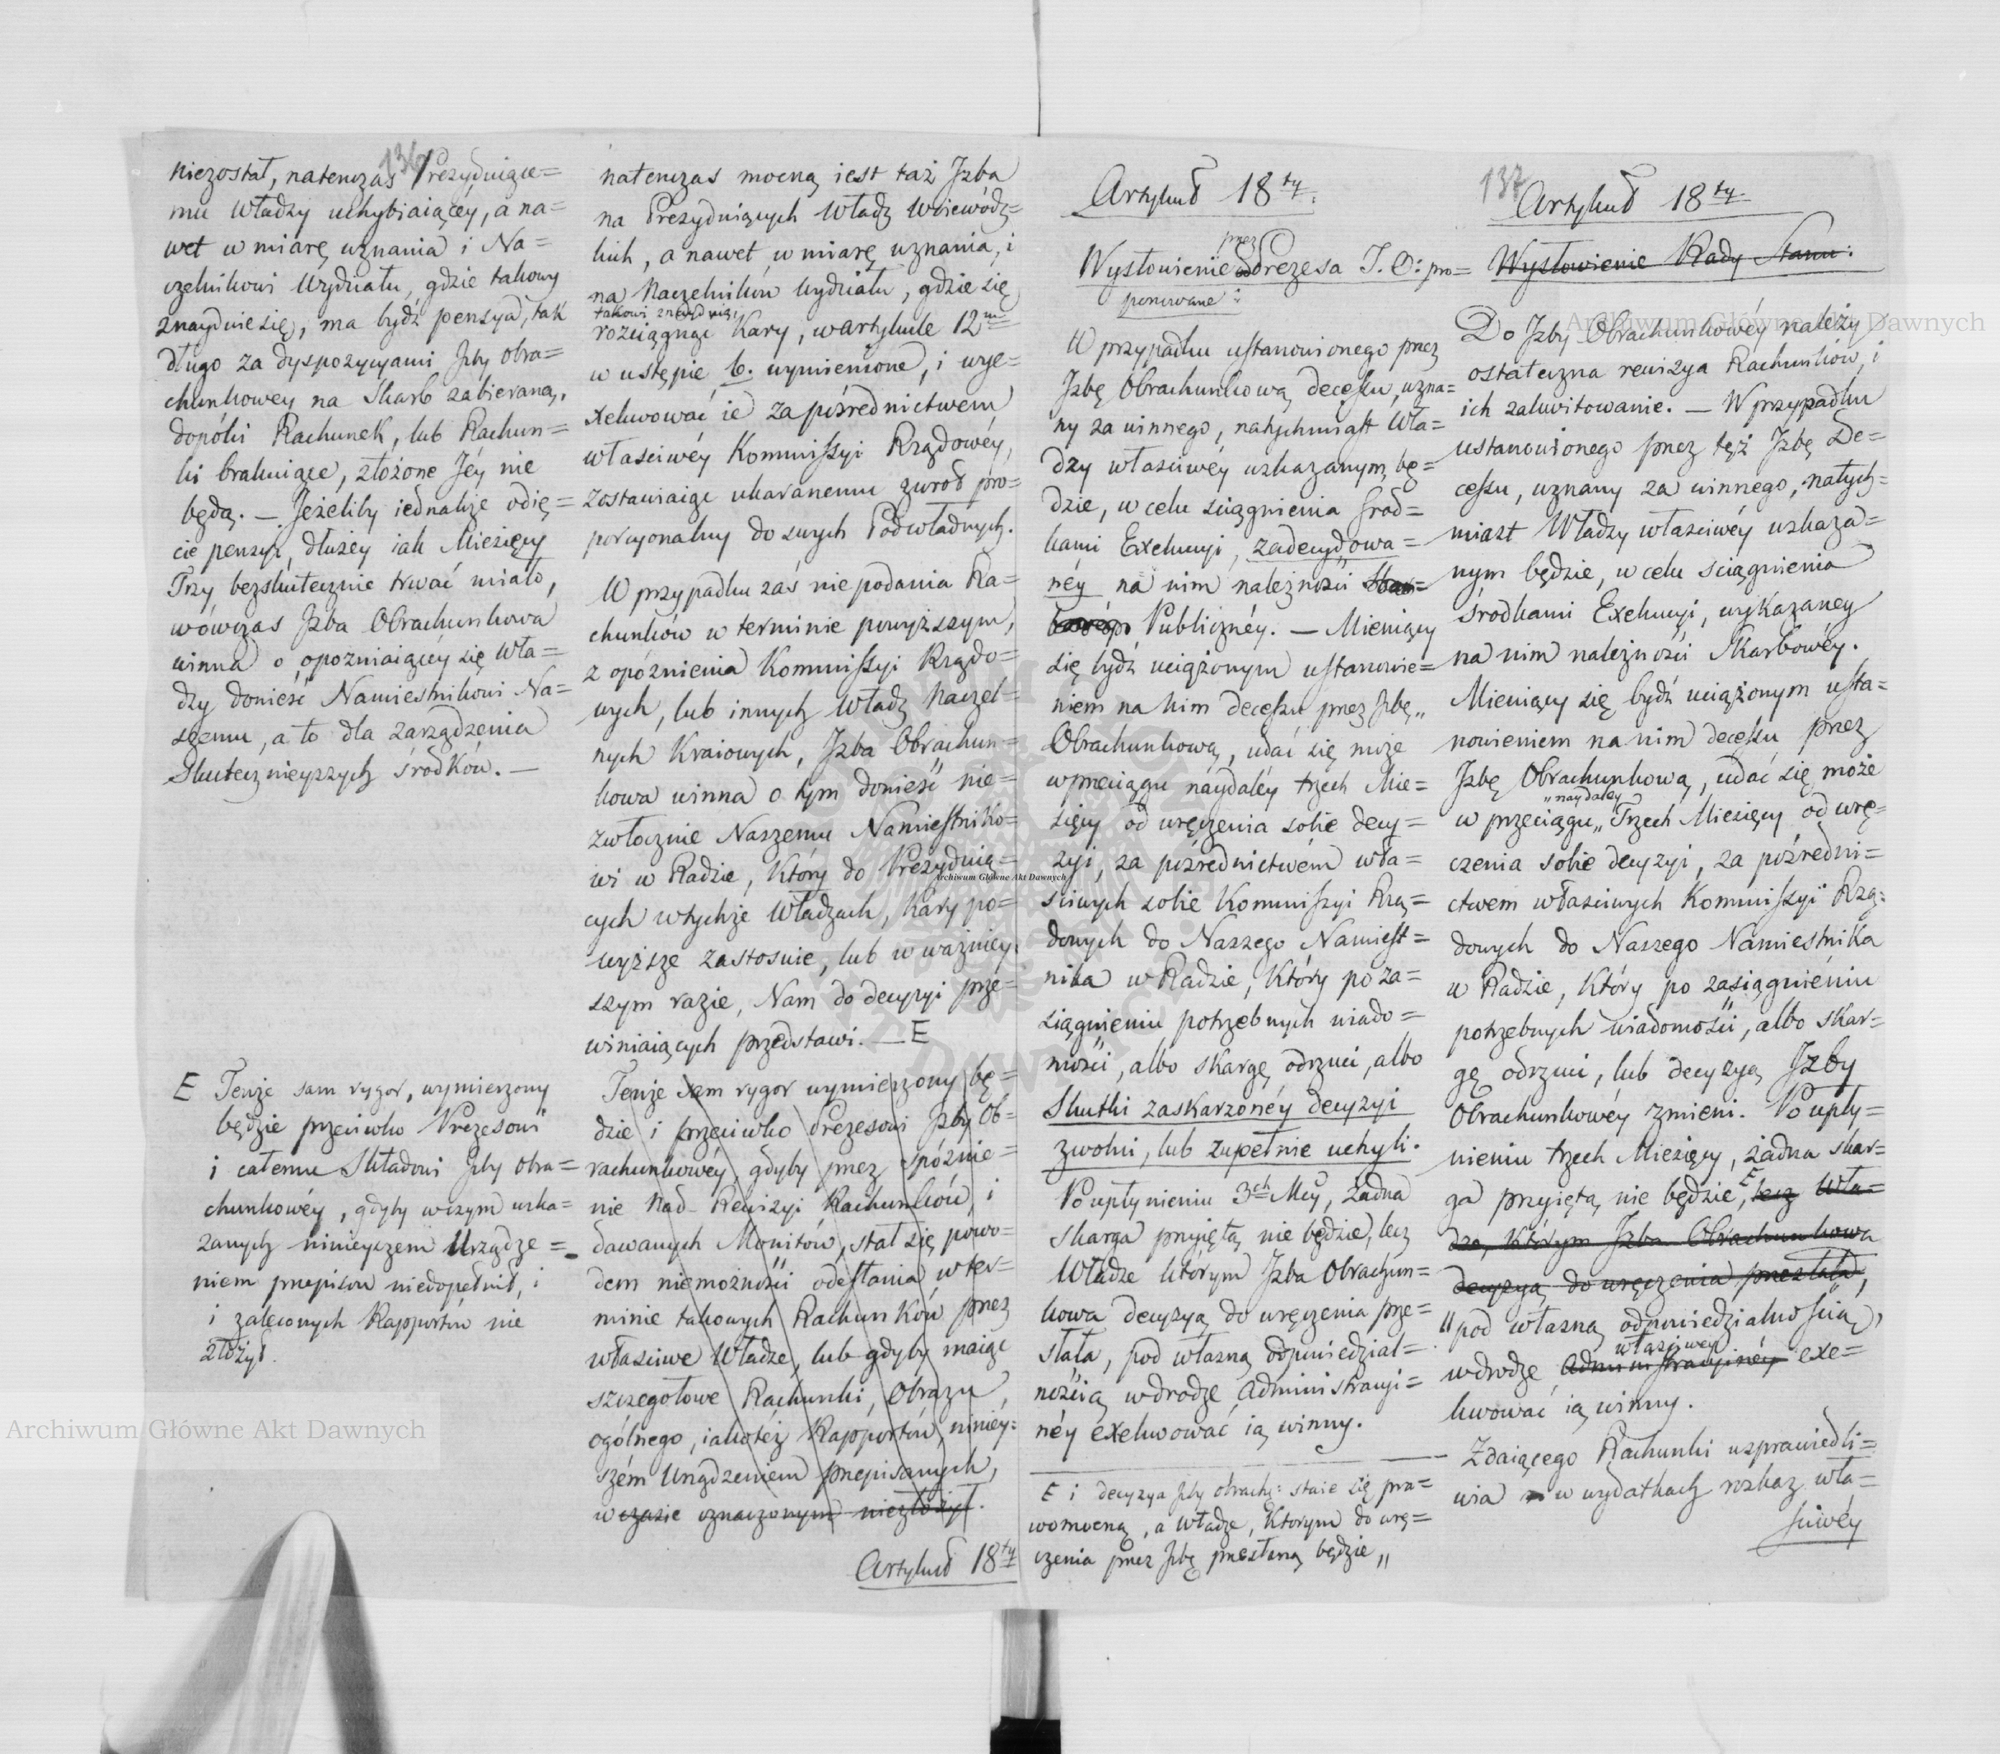 136
niezostał, natenczas Prezyduiące=
mu Władzy uchybiaiącéy, a na=
wet w miarę uznania i Na=
czelnikowi Wydziału, gdzie takowy
znayduie się, ma bydź pensya, tak
długo za dyspozycyami Jzby Obra=
chunkowey na Skarb zabieraną,
dopóki Rachunek, lub Rachun=
ki brakuiące, złożone Jéy nie
będą. — Jeżeliby iednakże odię=
cie pensyi, dłużey iak Miesięcy
Trzy bezskutecznie trwać miało,
wówczas Jzba Obrachunkowa
winna o opozniaiącéy się Wła=
dzy donieść Namiestnikowi Na=
szemu, a to dla zarządzenia
Skutecznieyszych środków. —
E Tenże sam rygor, wymierzony
będzie przeciwko Prezesowi
i całemu Składowi Jzby Obra=
chunkowéy, gdyby w czym wska=
zanych ninieyszem Urządze=
niem przepisow niedopełnił, i
i zaleconych Rapportów nie
złożył.
natenczas mocną iest taż Jzba
na Prezyduiących Władz Woiewódz=
kich, a nawet w miarę uznania, i
na Naczelników Wydziału, gdzie się
takowi znayduią,
rozciągnąć Kary, w artykule 12m
w ustępie b. wymienione, i wye=
xekwować ie za pośrednictwem
właściwéy Kommissyi Rządowéy,
zostawiaiąc ukaranemu zwrot pro=
porcyonalny do swych Podwładnych.
W przypadku zaś nie podania Ra=
chunków w terminie powyższym,
z opóźnienia Kommissyi Rządo=
wych, lub innych Władz Naczel=
nych Kraiowych, Jzba Obrachun=
kowa winna o tym donieść nie=
zwłocznie Naszemu Namiestniko=
wi w Radzie, Który do Prezyduią=
cych w tychże Władzach, Kary po=
wyższe zastosuie, lub w ważniey=
szym razie, Nam do decyzyi prze=
winiaiących przedstawi. — E
Tenże sam rygor wymierzony bę=
dzie i przeciwko Prezesowi Jzby Ob=
rachunkowéy, gdyby przez spóźnie=
nie Nad Rewizyi Rachunków, i
dawanych Monitów, stał się powo=
dem niemożności odesłania w ter=
minie takowych Rachunków przez
właściwe Władze, lub gdyby maiąc
szczegołowe Rachunki, Obrazu
ogólnego, iakotéż Rapportów, niniéy=
szém Urządzeniem przepisanych,
w czasie oznaczonym niezłożył.
Artykuł 18ty
Artykuł 18ty.
przez
Wysłowienie od Prezesa J. O: pro=
ponowane:
W przypadku ustanowionego przez
Jzbę Obrachunkową decessu, uzna=
ny za winnego, natychmiast Wła=
dzy właściwéy wskazanym bę=
dzie, w celu sciągnienia srod=
kami Exekucyi, zadecydowa=
néy na nim należności Skar=
bowey Publicznéy. — Mieniący
się bydź uciążonym ustanowie=
niem na nim decessu przez Jzbę„
Obrachunkową, udać się może
w przeciągu naydaléy trzech Mie=
sięcy od wręczenia sobie decy=
zyi, za pośrednictwém wła=
ściwych sobie Kommissyi Rzą=
dowych do Naszego Namiest=
nika w Radzie, Który po za=
siągnieniu potrzebnych wiado=
mości, albo skargę odrzuci, albo
Skutki zaskarzonéy decyzyi
zwolni, lub zupełnie uchyli.
Po upłynieniu 3ch Mcy, żadna
skarga przyiętą nie będzie, lecz
Władze którym Jzba Obrachun=
kowa decyzyą do wręczenia prze=
słała, pod własną odpowiedzial=
nością w drodze Administracyi=
néy exekwować ią winny.
E i decyzya Jzby obrach: staie się pra=
womocną, a Władze, Którym do wrę=
czenia przez Jzbę przesłaną będzie„
137
Artykuł 18ty
Wysłowienie Rady Stanu:
Do Jzby Obrachunkowéy należy
ostateczna rewizya Rachunków, i
ich zakwitowanie. — W przypadku
ustanowionego przez tęż Jzbę De=
cessu, uznany za winnego, natych=
miast Władzy właściwéy wskaza=
nym będzie, w celu sciągnienia
środkami Exekucyi, wykazaney
na nim należności Skarbowéy.
Mieniący się bydź uciążonym usta=
nowieniem na nim decessu przez
Jzbę Obrachunkową, udać się może
„naydaley
w przeciągu„ Trzech Miesięcy od wrę=
czenia sobie decyzyi, za pośredni=
ctwem właściwych Kommissyi Rzą=
dowych do Naszego Namiestnika
w Radzie, Który po zasiągnieniu
potrzebnych wiadomości, albo skar=
gę odrzuci, lub decyzyą Jzby
Obrachunkowéy zmieni. Po upły=
nieniu trzech Miesięcy, żadna skar=
ga przyiętą nie będzie E, lecz Wła=
dze, Którym Jzba Obrachunkowa
decyzyą do wręczenia przesłała,
„pod własną odpowiedzialnością,
właściwey
w drodze Administracyinéy exe=
kwować ią winny.
— Zdaiącego Rachunki usprawiedli=
wia w wydatkach rozkaz wła=
ściwéy
Archiwum Główne Akt Dawnych
Archiwum Główne Akt Dawnych
Archiwum Główne Akt Dawnych